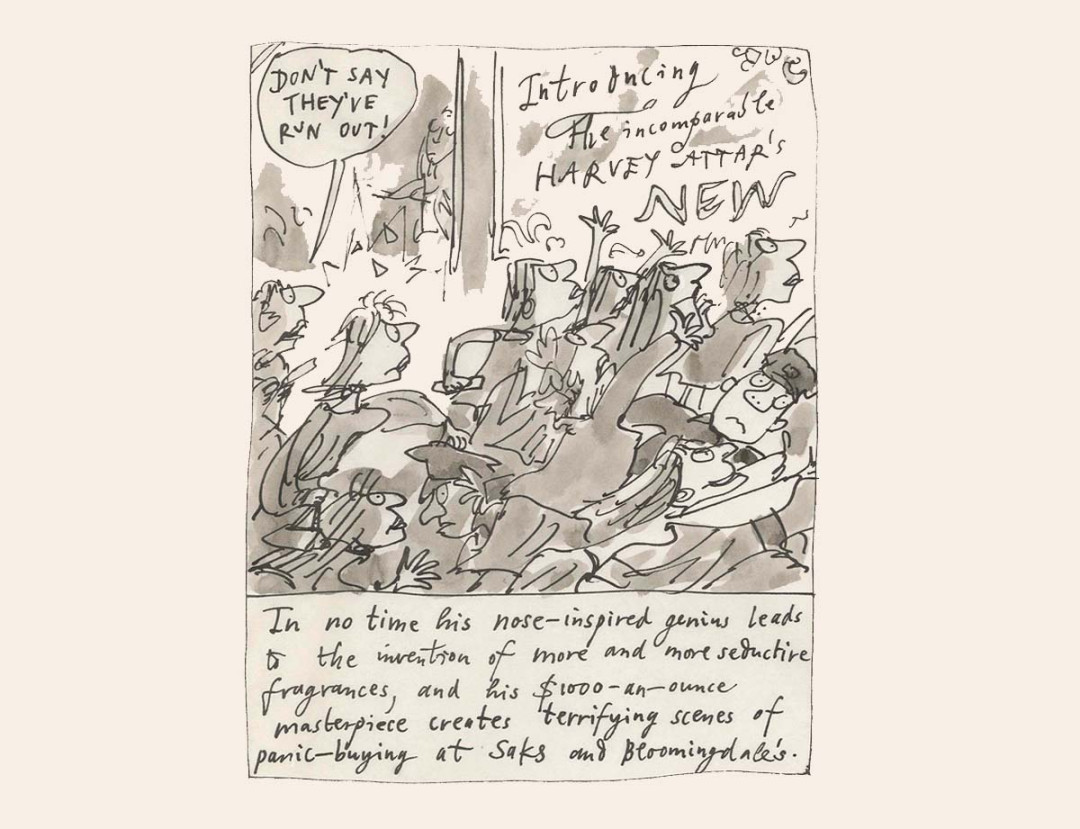 DON'T SAY
THEY'VE
RUN OUT!
Introducing
The incomparable
HARVEY ATTAR'S
NEW
In no time his nose-inspired genius leads
to the invention of more and more seductive
fragrances, and his $1000-an-ounce
masterpiece creates terrifying scenes of
panic-buying at Saks and Bloomingdale's.